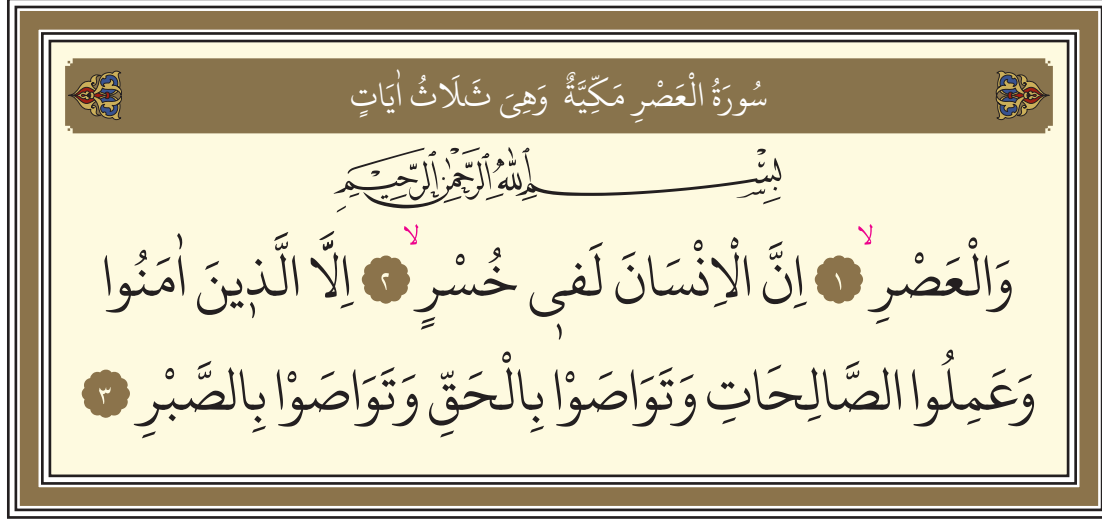 سُورَةُ الْعَصْرِ مَكِّيَّةٌ وَهِىَ ثَلَاثُ اٰيَاتٍ
بِسْمِ اللّٰهِ الرَّحْمٰنِ الرَّحِيمِ
وَالْعَصْرِۙ ﴿١﴾ اِنَّ الْاِنْسَانَ لَف۪ى خُسْرٍۙ ﴿٢﴾ اِلَّا الَّذ۪ينَ اٰمَنُوا
وَعَمِلُوا الصَّالِحَاتِ وَتَوَاصَوْا بِالْحَقِّ وَتَوَاصَوْا بِالصَّبْرِ ﴿٣﴾